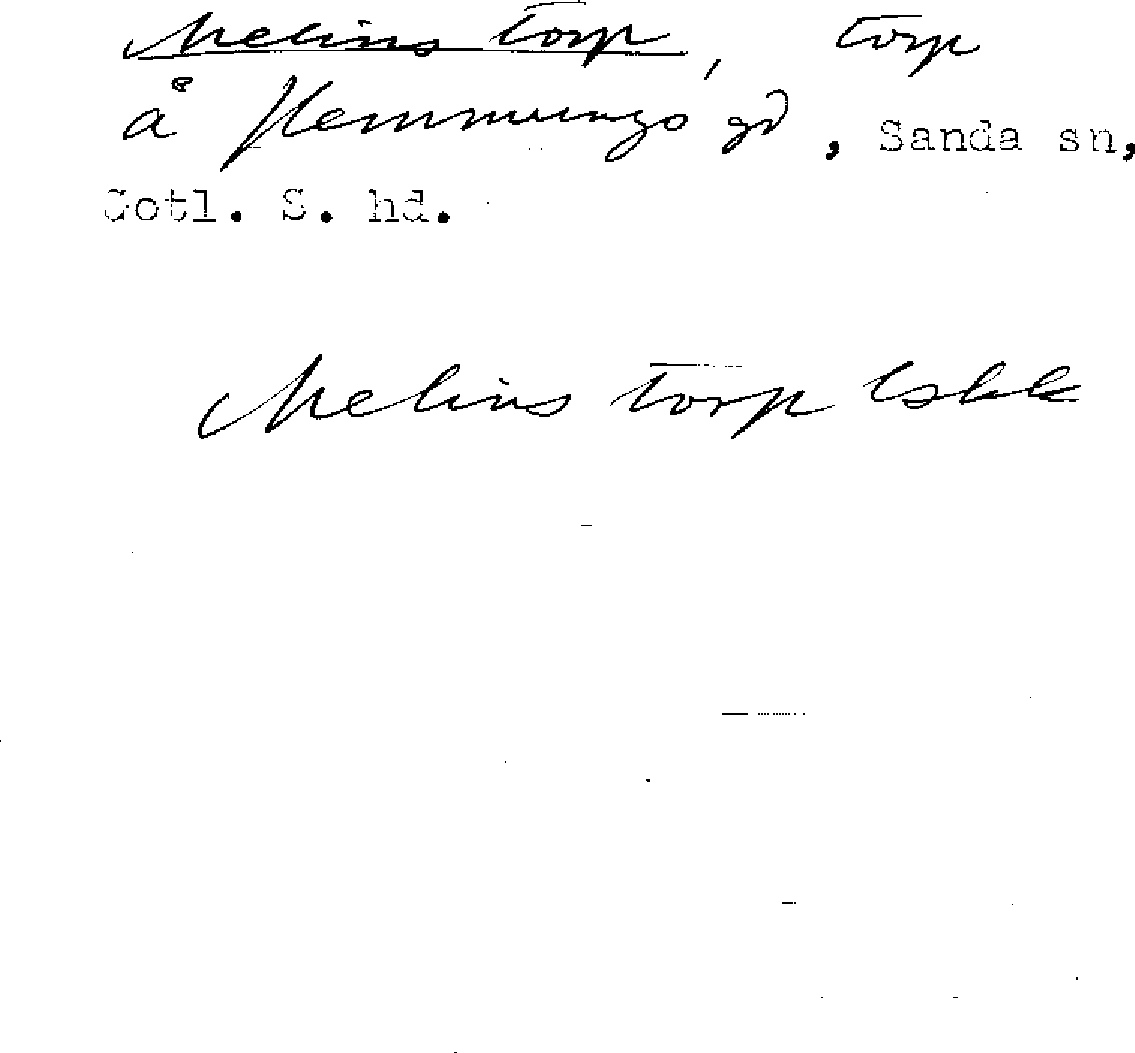 Melins torp, torp
å Hemmungs gd, Sanda sn,
Gotl. S. hd.
Melins torp Eskk